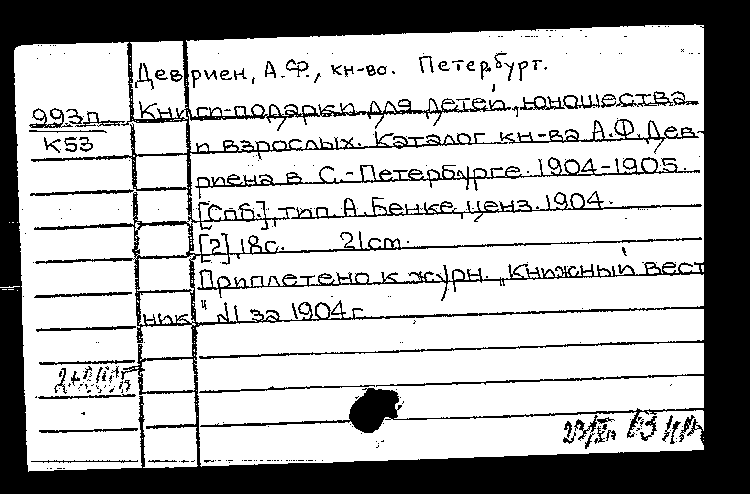 Девриен, А.Ф., кн-во. Петербург.
993п
К53
Книги-подарки для детей, юношества
и взрослых. Каталог кн-ва А.Ф.Дев-
риена в С.-Петербурге. 1904-1905.
[Спб.], тип. А.Бенке, ценз. 1904.
[2], 18с. 21см.
Приплетено к журн. „Книжный вест
ник" №1 за 1904г.